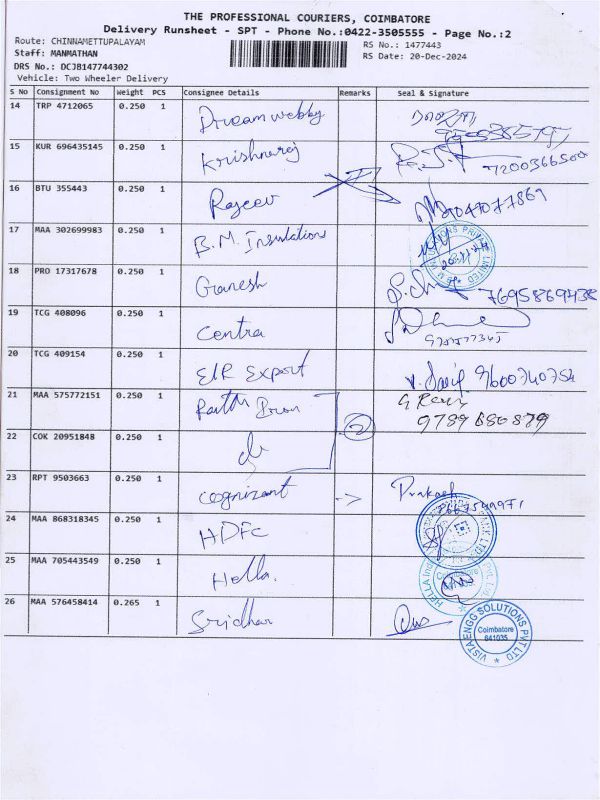 THE PROFESSIONAL COURIERS, COIMBATORE
Delivery Runsheet - SPT - Phone No.:0422-3505555 - Page No.:2
Route: CHINNAMETTUPALAYAM
RS No.: 1477443
Staff: MANMATHAN
RS Date: 20-Dec-2024
DRS No.: DCJB147744302
Vehicle: Two Wheeler Delivery
S No Consignment No Weight PCS Consignee Details Remarks Seal & Signature
14 TRP 4712065 0.250 1 Dreamwebby
15 KUR 696435145 0.250 1 Krishnaraj 7200366500
16 BTU 355443 0.250 1 Rajeev
17 MAA 302699983 0.250 1 B.M. Insulations
18 PRO 17317678 0.250 1 Ganesh 7695869438
19 TCG 408096 0.250 1 Centra
20 TCG 409154 0.250 1 EIR Export 9600740754
21 MAA 575772151 0.250 1
9789880879
22 COK 20951848 0.250 1 2
23 RPT 9503663 0.250 1 Cognizant -> Prakash
24 MAA 868318345 0.250 1 HDFC
25 MAA 705443549 0.250 1 Hella. HELLA
26 MAA 576458414 0.265 1 Sridhar
VISTAENGG SOLUTIONS PVT LTD
Coimbatore
641035